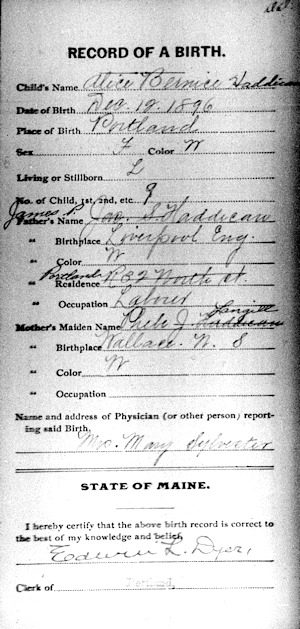 RECORD OF A BIRTH.
Child's Name Alice Bernice Haddican
Date of Birth Dec. 19. 1896
Place of Birth Portland
Sex F Color W
Living or Stillborn L
No. of Child, 1st, 2nd, etc. 9
James P.
Father's Name Jas. S. Haddican
" Birthplace Liverpool Eng.
" Color W
Portland
" Residence R 32 North st.
" Occupation Labour
Langill
Mother's Maiden Name Phebe J Haddican
" Birthplace Wallace. N. S
" Color W
" Occupation
Name and address of Physician (or other person) report-
ing said Birth,
Mrs. Mary Sylvester
STATE OF MAINE.
I hereby certify that the above birth record is correct to
the best of my knowledge and belief,
Edwin L. Dyer,
Clerk of Portland